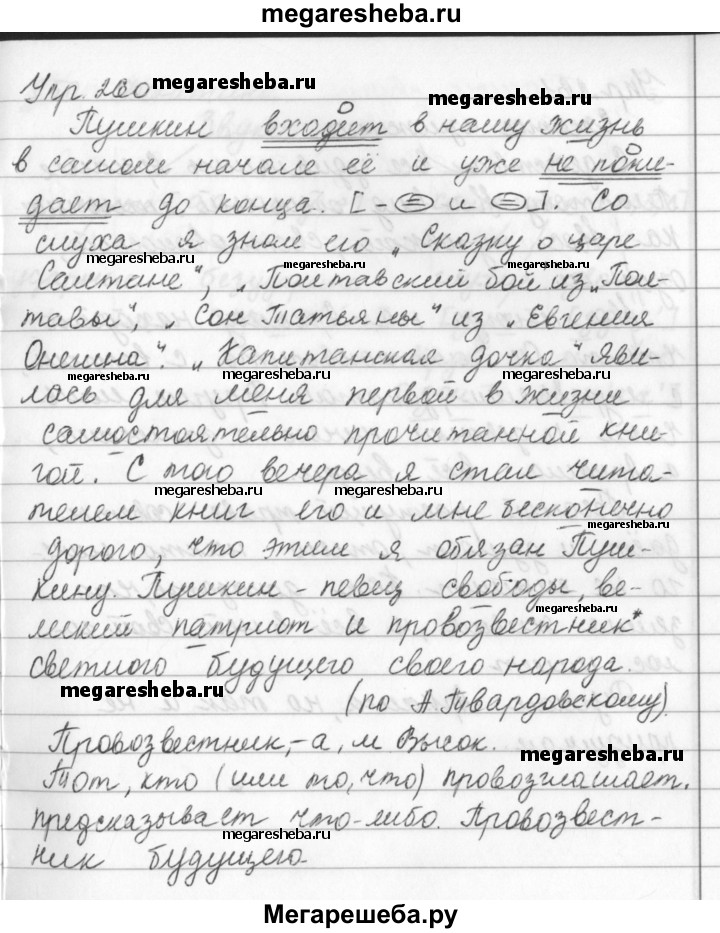 megaresheba.ru
Упр. 260 megaresheba.ru
megaresheba.ru
Пушкин входит в нашу жизнь
в самом начале её и уже не поки-
дает до конца. [- = и =]. Со
слуха я знал его „Сказку о царе
megaresheba.ru megaresheba.ru
Салтане", „Полтавский бой из „Пол-
тавы", „Сон Татьяны" из „Евгения
Онегина". „Капитанская дочка" яви-
megaresheba.ru megaresheba.ru
лась для меня первой в жизни
самостоятельно прочитанной кни-
гой. С того вечера я стал чита-
megaresheba.ru megaresheba.ru
телем книг его и мне бесконечно
megaresheba.ru
дорого, что этим я обязан Пуш-
кину. Пушкин - певец свободы, ве-
megaresheba.ru
ликий патриот и провозвестник*
светлого будущего своего народа.
megaresheba.ru (по А. Твардовскому)
Провозвестник, -а, м Высок.
megaresheba.ru
Тот, кто (или то, что) провозглашает,
предсказывает что-либо. Провозвест-
megaresheba.ru
ник будущего.
Мегарешеба.ру